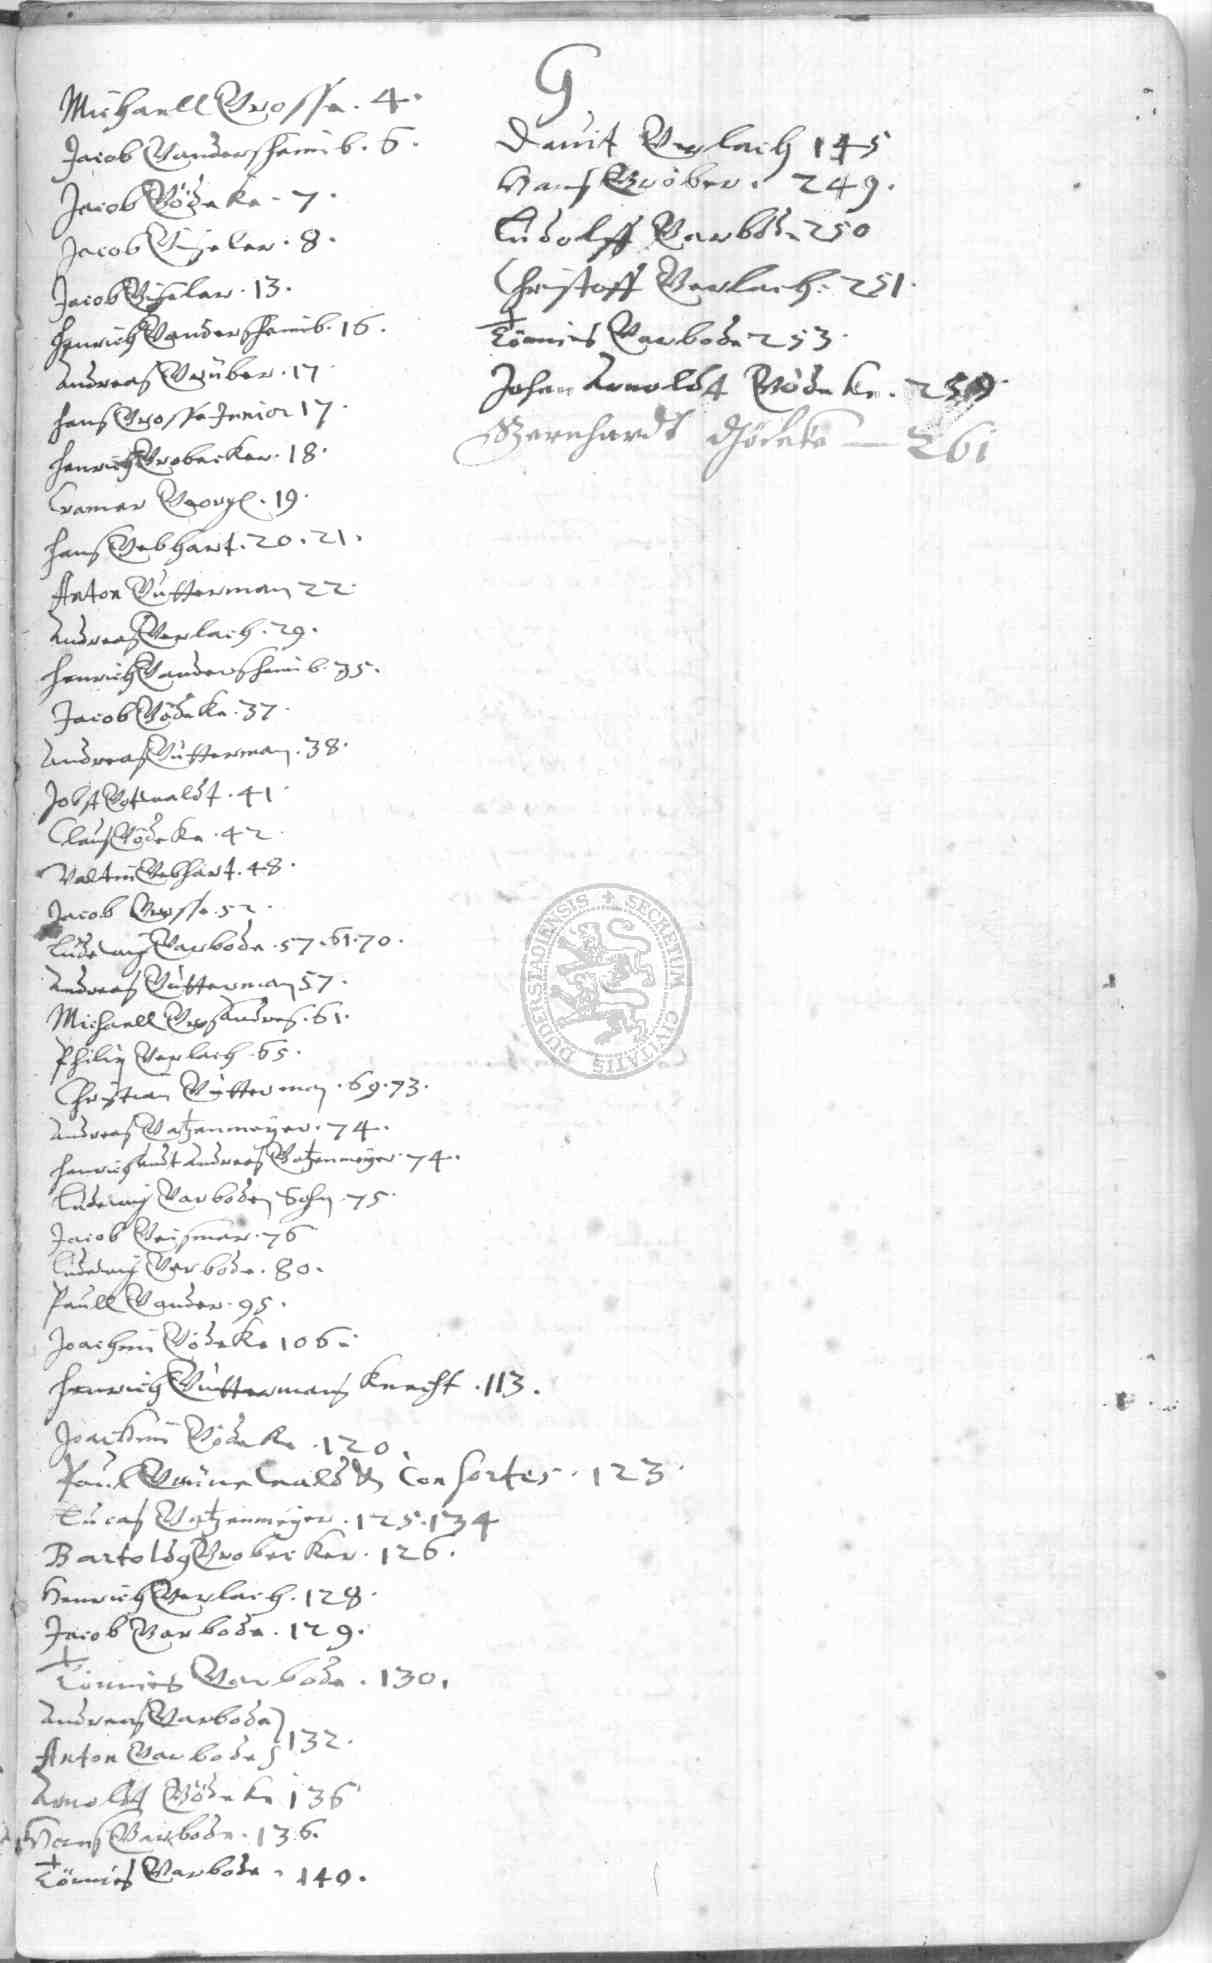 G
Michaell Grosse. 4.
Jacob Gandersheimb. 6.
Jacob Gödeke. 7.
Jacob Giseler. 8.
Jacob Giseler. 13.
Henrich Gandersheimb. 16.
Andreas Grüber. 17
Hans Grosse Junior 17.
Henrich Grobecker. 18.
Cramer Georg. 19.
Hans Gebhart. 20. 21.
Anton Gutterman 22.
Andreas Gerlach. 29.
Henrich Gandersheimb. 35.
Jacob Gödeke. 37.
Andreas Gutterman. 38.
Jobst Gotwaldt. 41.
Claus Gödeke. 42.
Valtin Gebhart. 48.
Jacob Grosse. 52.
Ludewig Garbode. 57. 61. 70.
Andreas Gutterman 57.
Michaell 61.
Philip Gerlach. 65.
Christian Gutterman. 69. 73.
Andreas Gatzenmeyer. 74.
Henrich undt Andreas Gatzenmeyer. 74.
Ludewig Garboden Sohn. 75.
Jacob Geismar. 76
Ludewig Garbode. 80.
Paull Gander. 95.
Joachim Gödeke 106.
Henrich Guttermans Knecht. 113.
Joachim Gödeke. 120.
Paul Consortes. 123.
Lucas Gatzenmeyer. 125. 134
Bartoldg Grobecker. 126.
Henrich Gerlach. 128.
Jacob Garbode. 129.
Tönnies Garbode. 130.
Andreas Garbode
Anton Garbode 132.
Arnoldt Gödeke 136
Hans Garbode. 136.
Tönnies Garbode. 140.
Davit Gerlach 145
Hans Gröber. 249.
Ludolff Garbode 250
Christoff Gerlach. 251.
Tönnies Garbode 253.
Johan Arnoldt Gödeke. 259.
Gernhardt 261
SECRETUM CIVITATIS DUDERSTADIENSIS